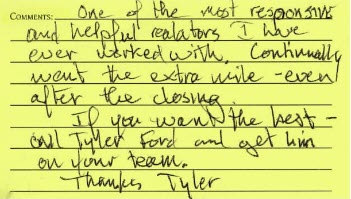 COMMENTS: One of the most responsive
and helpful realators I have
ever worked with. Continually
went the extra mile - even
after the closing.
If you want the best -
call Tyler Ford and get him
on your team.
Thanks Tyler